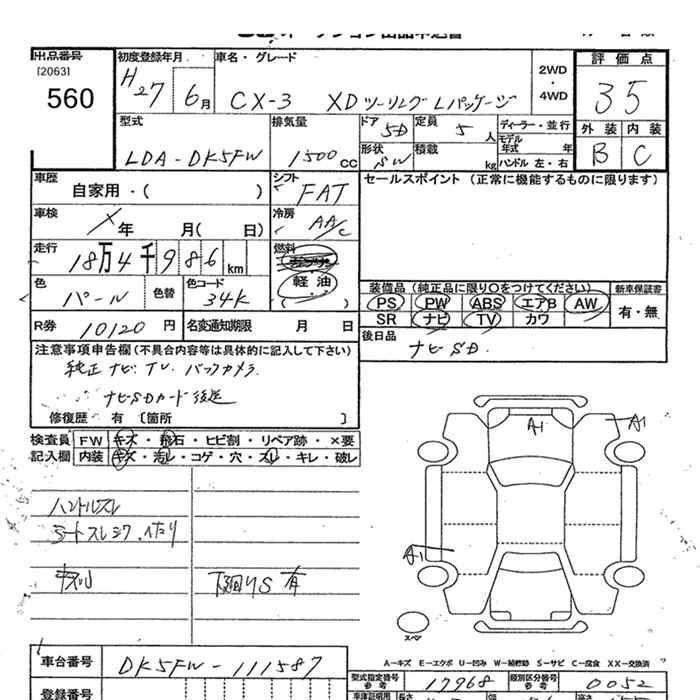 出品番号
[2063]
560
初度登録年月
H27 6月
車名・グレード
CX-3 XDツーリング Lパッケージ
2WD
・
4WD
評価点
35
外装 内装
B C
型式
LDA-DK5FW
排気量
1500cc
ドア 5D
形状 SW
定員 5人
積載 kg
ディーラー・並行
モデル年式 年
ハンドル 左・右
車歴
自家用・( )
シフト
FAT
セールスポイント (正常に機能するものに限ります)
車検
年 月( 日)
冷房
AAC
走行
18万4千986km
燃料
軽油
色
パール
色替
色コード
34K
装備品 (純正品に限り○をつけてください)
PS PW ABS エアB AW
SR ナビ TV カワ
新車保証書
有・無
R券 10120円
名変通知期限 月 日
後日品
ナビSD.
注意事項申告欄(不具合内容等は具体的に記入して下さい)
純正ナビ. TV. バックカメラ.
ナビSDカード後送
修復歴 有 〔箇所 〕
検査員 FW キズ・飛石・ヒビ割・リペア跡・×要
記入欄 内装 キズ・汚レ・コゲ・穴・スレ・キレ・破レ
A1
A1
A1
ハンドルスレ
シートスレシワ.ヘタリ
下廻りS 有
スペア
A—キズ E—エクボ U—凹み W—補修跡 S—サビ C—腐食 XX—交換済
車台番号
DK5FW-111587
型式指定番号
参考
17968
類別区分番号
参考
0052
登録番号
車庫証明用
長さ
高さ